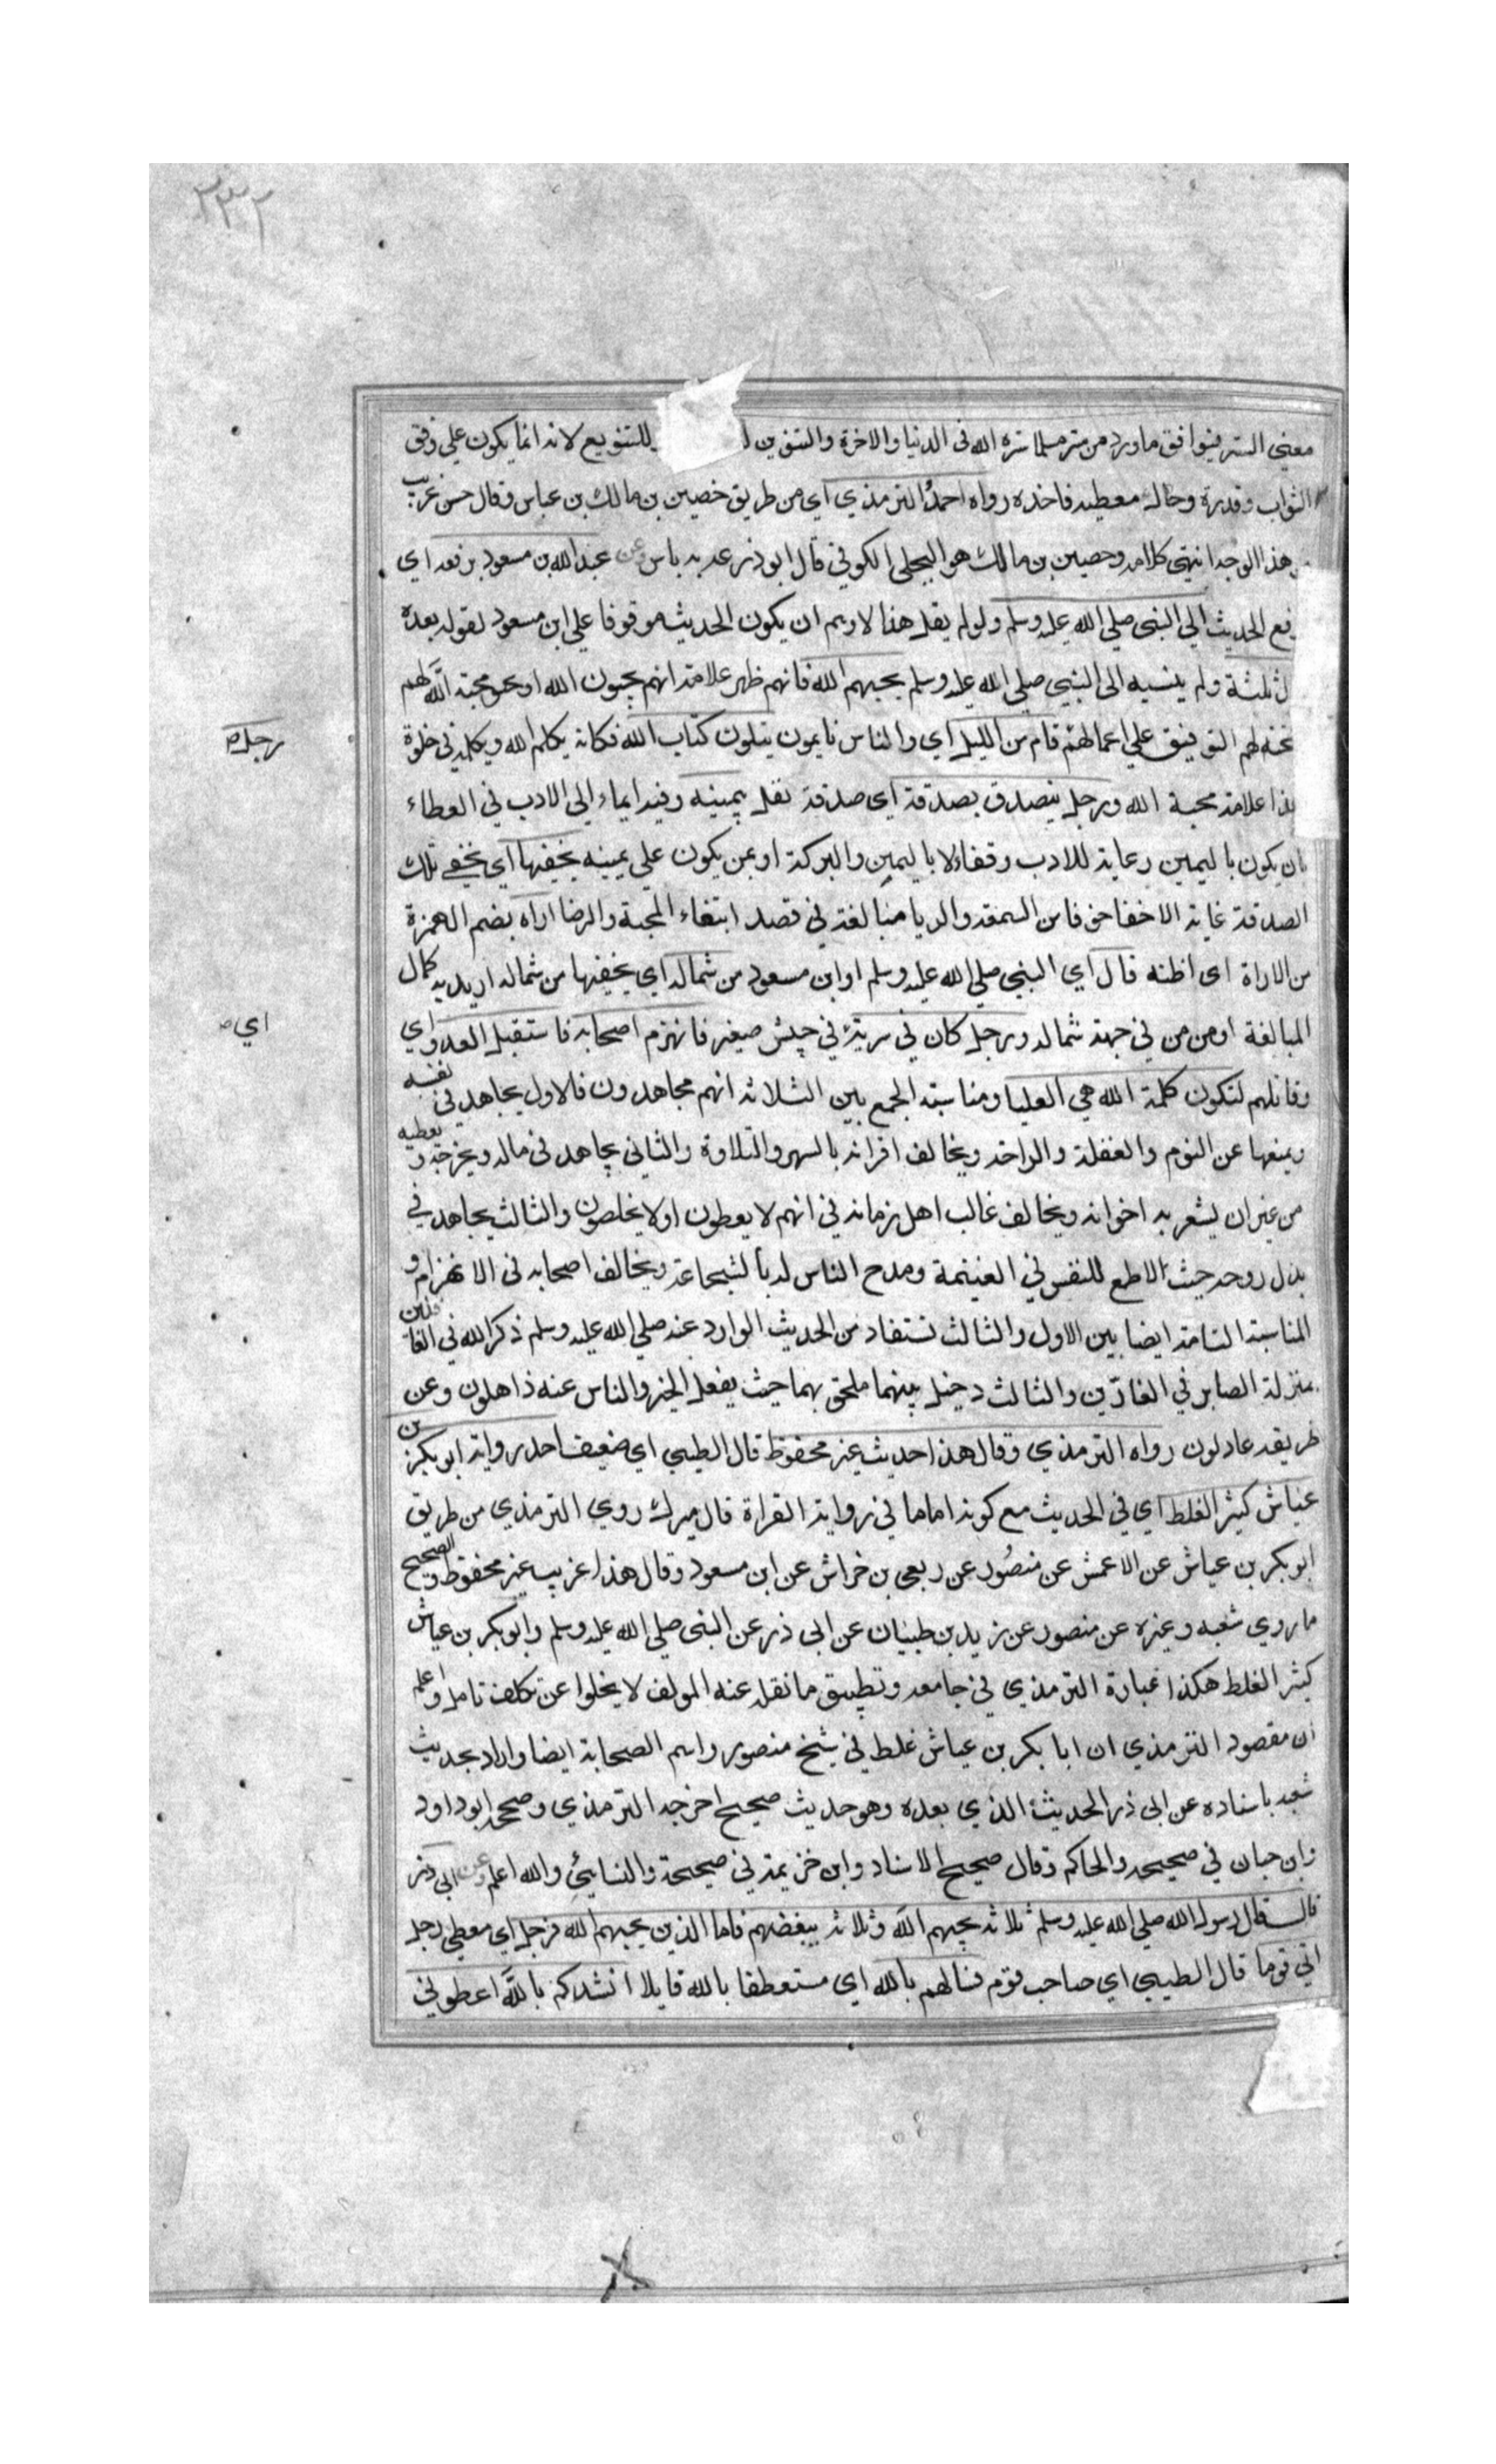 ٢٣٢
معني الستر فيوافق ماورد من ستر مسلما ستره الله في الدنيا والاخرة والتنوين للتنويع لانه انما يكون علي وفق
الثواب وقدرة وحالة معطيه فاخذه رواه احمد الترمذي اي من طريق خصين بن مالك بن عباس وقال حسن غريب
من هذا الوجه انتهى كلامه وحصين بن مالك هو البجلي الكوفي قال ابوذرعه به باس وعن عبد الله بن مسعود يرفعه اي
رفع الحديث الي النبي صلي الله عليه وسلم ولولم يقل هذا لاوهم ان يكون الحديث موقوفا علي ابن مسعود لقوله بعده
ل ثلثة ولم ينسبه الى النبي صلي الله عليه وسلم يحبهم الله فانهم ظهر علامة انهم يحبون الله او محبة الله لهم
لهم التوفيق علي اعمالهم قام من الليل اي والناس نايمون يتلون كتاب الله فكانه يكلم الله ويكلمه في خلوة
رجل ص
هذا علامة محبة الله ورجل يتصدق بصدقة اي صدقة نفل بيمينه وفيه ايماء الي الادب في العطاء
بان يكون باليمين رعاية للادب وتفاءلا باليمين والبركة او بمن يكون علي يمينه يخفيها اي يخفي تلك
الصدقة غاية الاخفا خوفا من السمعه والريا مبالغة في قصد ابتغاء المحبة والرضا اراه بضم الهمزة
من الاراة اى اظنه قال اي النبي صلي الله عليه وسلم او ابن مسعود من شماله اي يخفيها من شماله اريد به كمال
المبالغة او من من في جهة شماله ورجل كان في سرية في جيش صغير فانهزم اصحابه فاستقبل العدو اي
اي ص
وقاتلهم لتكون كلمة الله هي العليا ومناسبة الجمع بين الثلاثة انهم مجاهدون فالاول يجاهد في نفسه
ويمنعها عن النوم والغفلة والراحة ويخالف اقرانه بالسهر والتلاوة والثاني يجاهد في ماله ويخرجه ويعطيه
من غير ان يشعر به اخوانه ويخالف غالب اهل زمانه في انهم لا يعطون اولا يخلصون والثالث يجاهد في
بذل روحه حيث لاطمع للنفس في الغنيمة ومدح الناس له بالشجاعة ويخالف اصحابه في الانهزام و
المناسبة التامة ايضا بين الاول والثالث تستفاد من الحديث الوارد عنه صلي الله عليه وسلم ذكر الله في الغافلين
بمنزلة الصابر في الفارّين والثالث دخيل بينهما ملحق بهما حيث يفعل الخير والناس عنه ذاهلون وعن
طريقه عادلون رواه الترمذي وقال هذا حديث غير محفوظ قال الطيبي اي ضعيف احد رواية ابوبكر بن
عياش كثير الغلط اي في الحديث مع كونه اماما في رواية القراة قال ميرك روي الترمذي من طريق
ابوبكر بن عياش عن الاعمش عن منصُور عن ربعي بن خراش عن ابن مسعود وقال هذا غريب غير محفوظ والصحيح
ما روي شعبه وغيره عن منصور عن زيد بن طبيان عن ابي ذر عن النبي صلي الله عليه وسلم وابوبكر بن عياش
كثير الغلط هكذا عبارة الترمذي في جامعه وتطبيق ما نقله عنه المولف لا يخلوا عن تكلف تامل واعلم
ان مقصود الترمذي ان ابا بكر بن عياش غلط في شيخ منصور واسم الصحابة ايضا واراد بحديث
شعبه باسناده عن ابي ذر الحديث الذي بعده وهو حديث صحيح اخرجه الترمذي وصححه ابوداود
وابن حبان في صحيحه والحاكم وقال صحيح الاسناد وابن خزيمة في صحيحة والنسايئي والله اعلم وعن ابي ذر
قال قال رسول الله صلي الله عليه وسلم ثلاثة يحبهم الله وثلاثة يبغضهم فاما الذين يحبهم الله فرجل اي معطي رجل
اتي قوما قال الطيبي اي صاحب قوم فسالهم بالله اي مستعطفا بالله قايلا انشدكم بالله اعطوني